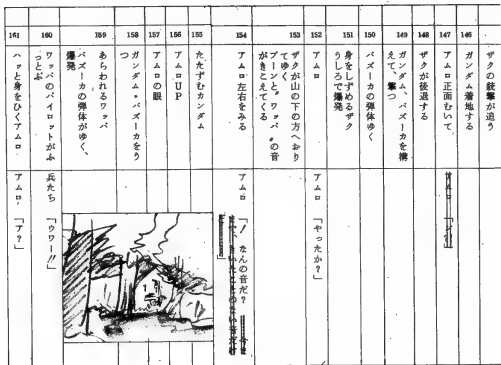 ザクの銃撃が追う
146
ガンダム着地する
147
アムロ正面むいて、
アムロ
148
ザクが後退する
149
ガンダム、バズーカを構
えて、撃つ
150
バズーカの弾体ゆく
151
身をしずめるザク
うしろで爆発
152
アムロ
アムロ 「やったか?」
153
ザクが山の下の方へおり
てゆく
ブーンと〝ワッパ〟の音
がきこえてくる
154
アムロ左右をみる
アムロ 「! なんの音だ?
155
たたずむガンダム
156
アムロUP
157
アムロの眼
158
ガンダム・バズーカをう
つ
159
あらわれるワッパ
バズーカの弾体がゆく、
爆発
160
ワッパのパイロットがふ
っとぶ
兵たち 「ウワー!!」
161
ハッと身をひくアムロ
アムロ 「ア?」